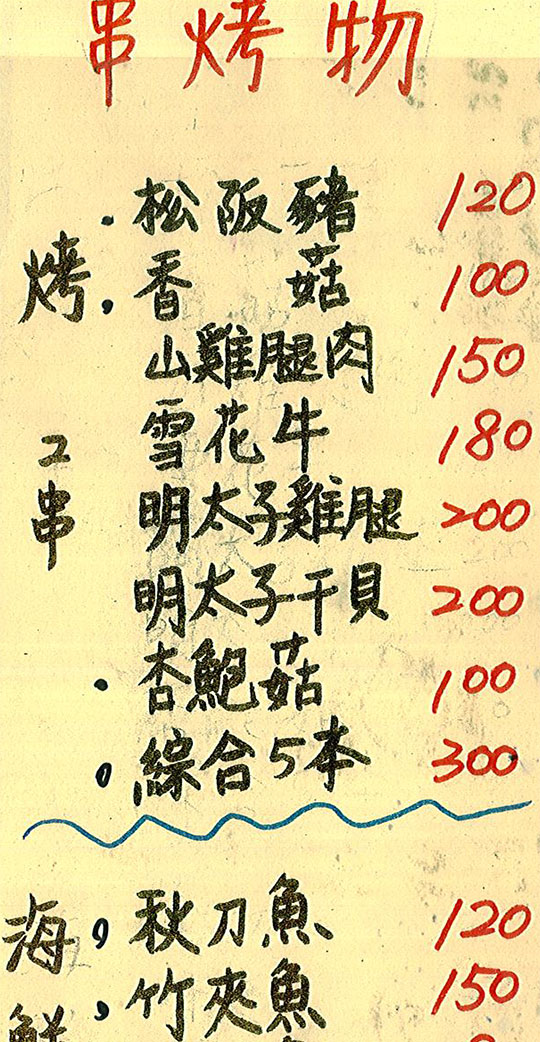 串烤物
烤2串
松阪豬 120
香菇 100
山雞腿肉 150
雪花牛 180
明太子雞腿 200
明太子干貝 200
杏鮑菇 100
綜合5本 300
海鮮
秋刀魚 120
竹夾魚 150